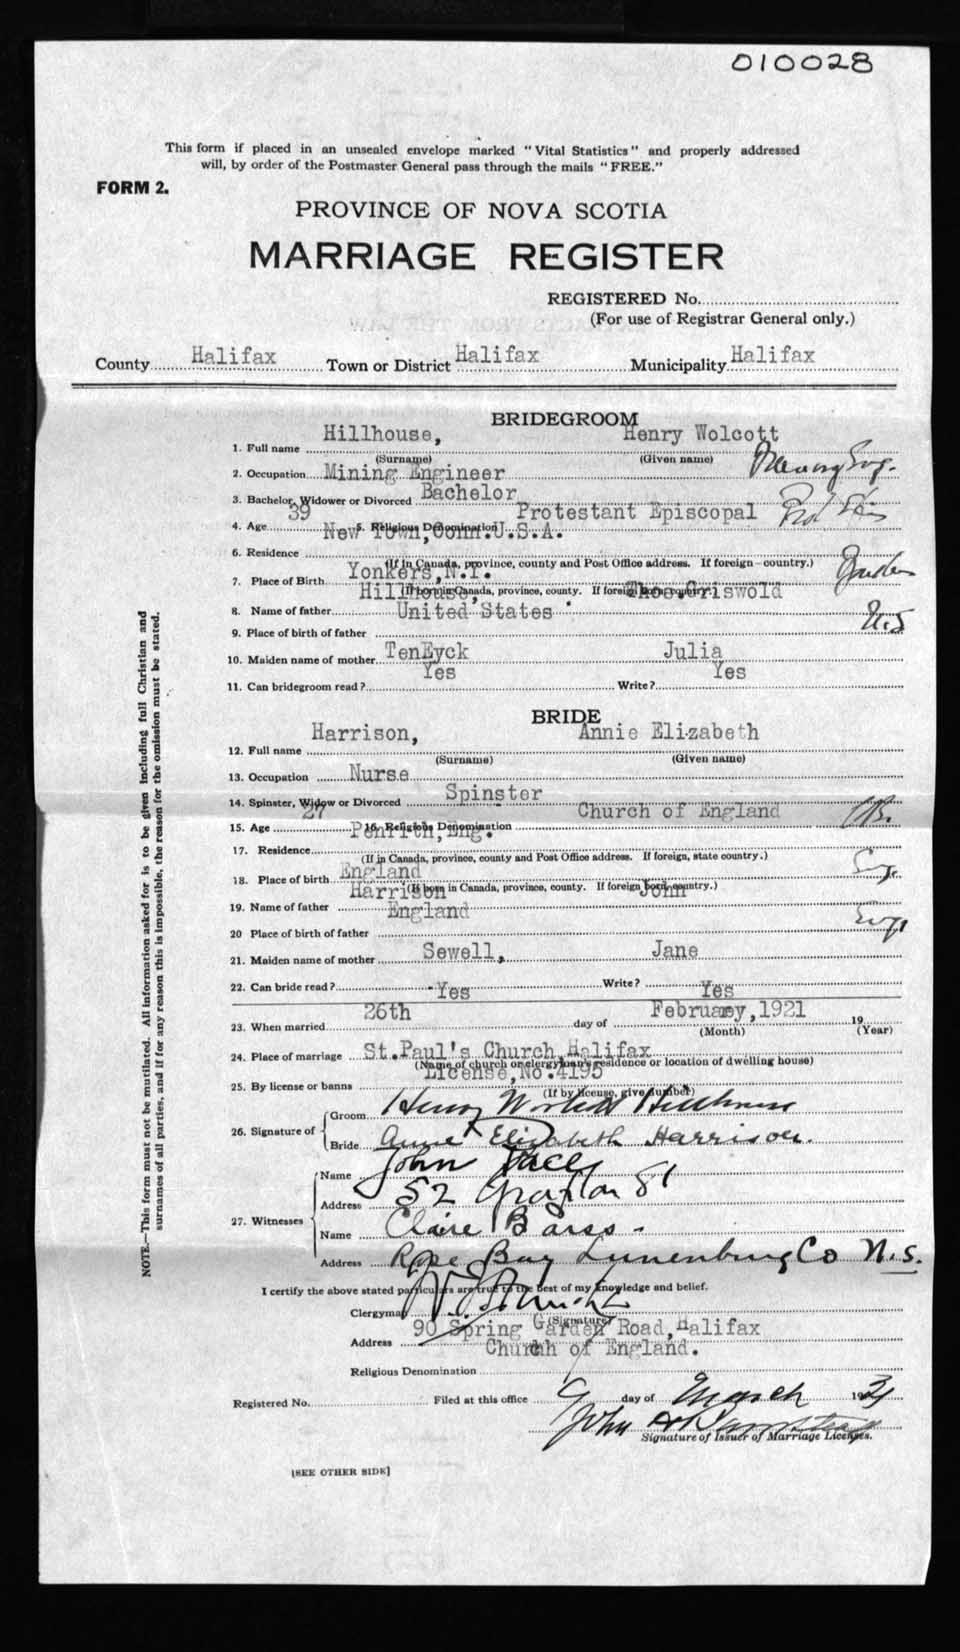 010028
This form if placed in an unsealed envelope marked "Vital Statistics" and properly addressed
will, by order of the Postmaster General pass through the mails "FREE."
FORM 2.
PROVINCE OF NOVA SCOTIA
MARRIAGE REGISTER
REGISTERED No.
(For use of Registrar General only.)
County Halifax Town or District Halifax Municipality Halifax
BRIDEGROOM
1. Full name Hillhouse, Henry Wolcott
(Surname) (Given name)
2. Occupation Mining Engineer
3. Bachelor, Widower or Divorced Bachelor
4. Age 39 5. Religious Denomination Protestant Episcopal
6. Residence New Town, Conn. U.S.A.
(If in Canada, province, county and Post Office address. If foreign—country.)
7. Place of Birth Yonkers, N.Y.
(If born in Canada, province, county. If foreign born country.)
8. Name of father Hillhouse, Thos. Griswold
9. Place of birth of father United States U.S
10. Maiden name of mother TenEyck Julia
11. Can bridegroom read? Yes Write? Yes
BRIDE
12. Full name Harrison, Annie Elizabeth
(Surname) (Given name)
13. Occupation Nurse
14. Spinster, Widow or Divorced Spinster
15. Age 27 16. Religious Denomination Church of England
17. Residence Penrith, Eng.
(If in Canada, province, county and Post Office address. If foreign, state country.)
18. Place of birth England
(If born in Canada, province, county. If foreign born country.)
19. Name of father Harrison John
20 Place of birth of father England
21. Maiden name of mother Sewell, Jane
22. Can bride read? Yes Write? Yes
23. When married 26th day of February, 1921 19
(Month) (Year)
24. Place of marriage St. Paul's Church, Halifax
(Name of church or clergyman's residence or location of dwelling house)
25. By license or banns License, No. 4195
(If by license, give number)
26. Signature of
Groom Henry Wolcott Hillhouse
Bride Annie Elizabeth Harrison.
27. Witnesses
Name John
Address 52 Grafton St
Name Claire Barss
Address Rose Bay Lunenburg Co N.S.
I certify the above stated particulars are true to the best of my knowledge and belief.
Clergyman
(Signature)
Address 90 Spring Garden Road, Halifax
Religious Denomination Church of England.
Registered No. Filed at this office 9 day of March 1921
John
Signature of Issuer of Marriage Licenses.
[SEE OTHER SIDE]
NOTE.—This form must not be mutilated. All information asked for is to be given including full Christian and
surnames of all parties, and if for any reason this is impossible, the reason for the omission must be stated.